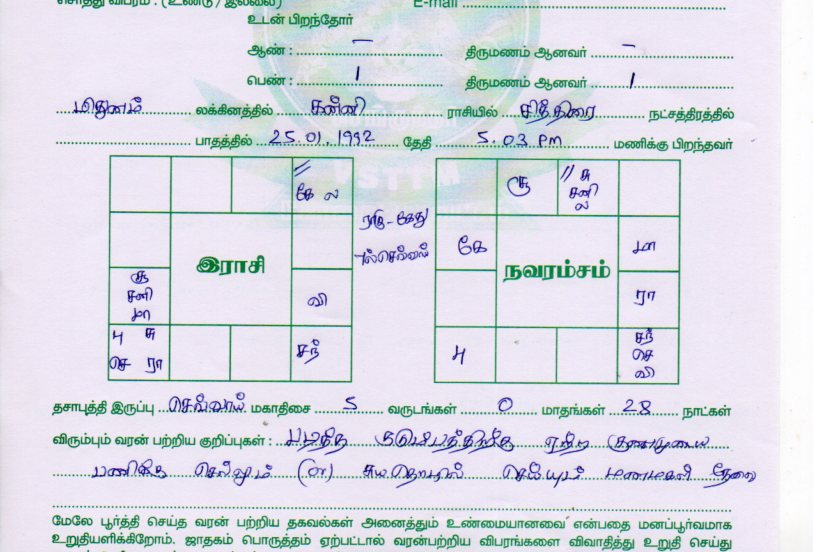 சொத்து விபரம் : (உண்டு / இல்லை) E-mail
உடன் பிறந்தோர்
ஆண் : – திருமணம் ஆனவர் –
பெண் : 1 திருமணம் ஆனவர் 1
மிதுனம் லக்கினத்தில் கன்னி ராசியில் சித்திரை நட்சத்திரத்தில்
பாதத்தில் 25.01.1992 தேதி 5.03 PM மணிக்கு பிறந்தவர்
கே ல
சூ சனி மா
இராசி
வி
பு சு
செ ரா
சந்
ராகு - கேது
சூ
சு சனி ல
கே
நவரம்சம்
மா
ரா
பு
சந் செ வி
தசாபுத்தி இருப்பு செவ்வாய் மகாதிசை 5 வருடங்கள் 0 மாதங்கள் 28 நாட்கள்
விரும்பும் வரன் பற்றிய குறிப்புகள் : குடும்பத்திற்கு ஏற்ற
பணிக்கு செல்லும் (or) சுயதொழில் செய்யும் மணமகன் தேவை
மேலே பூர்த்தி செய்த வரன் பற்றிய தகவல்கள் அனைத்தும் உண்மையானவை என்பதை மனப்பூர்வமாக
உறுதியளிக்கிறோம். ஜாதகம் பொருத்தம் ஏற்பட்டால் வரன்பற்றிய விபரங்களை விவாதித்து உறுதி செய்து